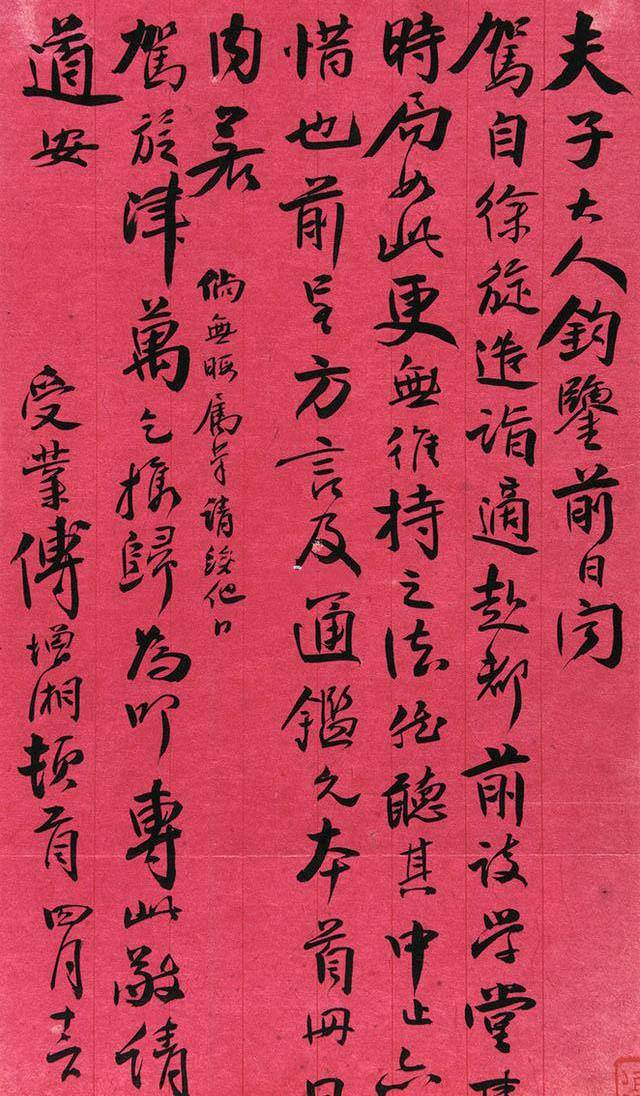 夫子大人鈞鑒前日聞
駕自徐旋造詣適赴都前議学堂
時局如此更無維持之法能聽其中止亦
惜也前呈方言及通鑑九本首冊
内
倘無暇屬字請
駕於津萬乞攜歸為叩專此敬請
道安
受業傅增湘頓首四月十六